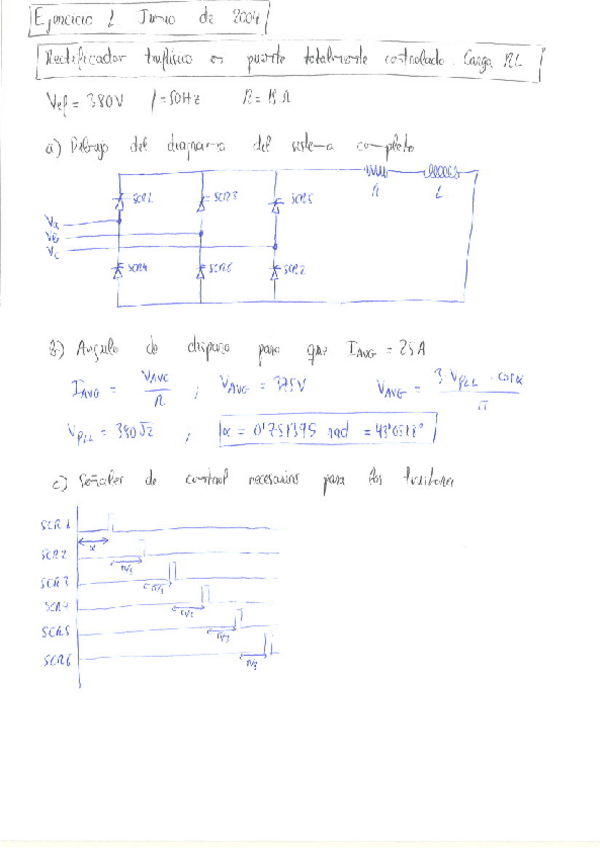 Ejercicio 1 Junio de 2004
Rectificador trifásico en puente totalmente controlado. Carga RL
Vef = 380V f = 50Hz R = 15 Ω
a) Dibujo del diagrama del sistema completo
SCR1 SCR3 SCR5
R L
Va
Vb
Vc
SCR4 SCR6 SCR2
b) Angulo de disparo para que IAVG = 25A
IAVG = VAVG / R ; VAVG = 375V VAVG = 3 VPLL · cosα / π
VPLL = 380√2 ; α = 0'751395 rad = 43'0518°
c) Señales de control necesarias para los tiristores
SCR1
α
SCR2
π/3
SCR3
π/3
SCR4
π/3
SCR5
π/3
SCR6
π/3